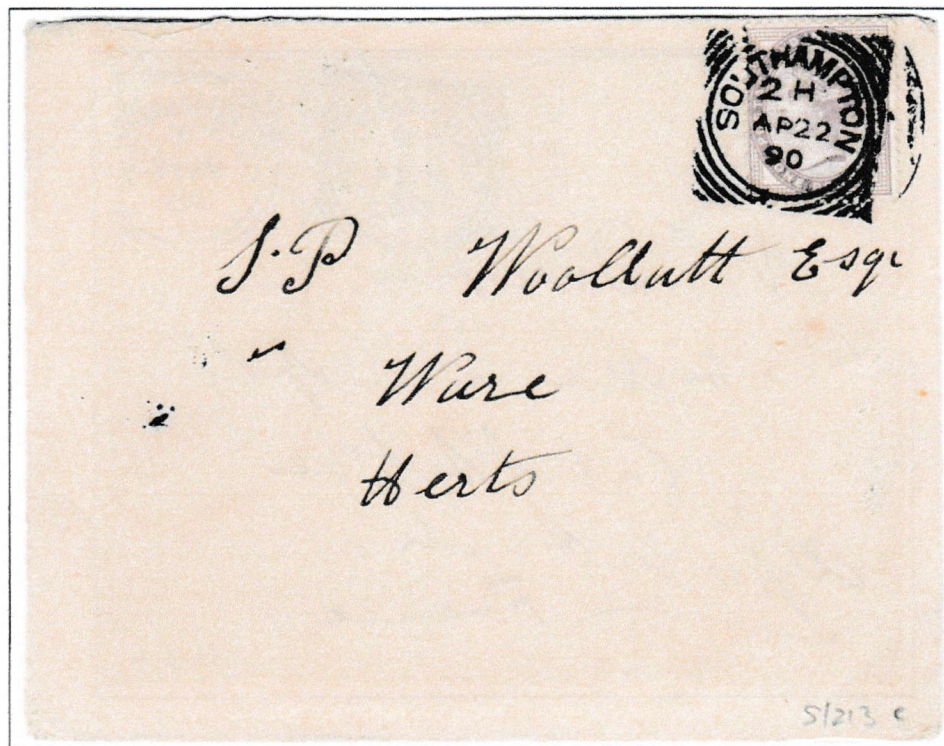 SOUTHAMPTON
2 H
AP22
90
S.P Woollatt Esqr
Ware
Herts
S/213 c